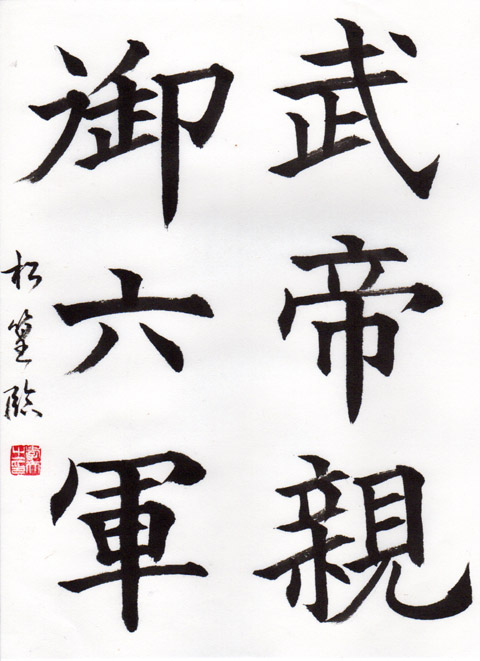 武帝親
御六軍
松篁臨